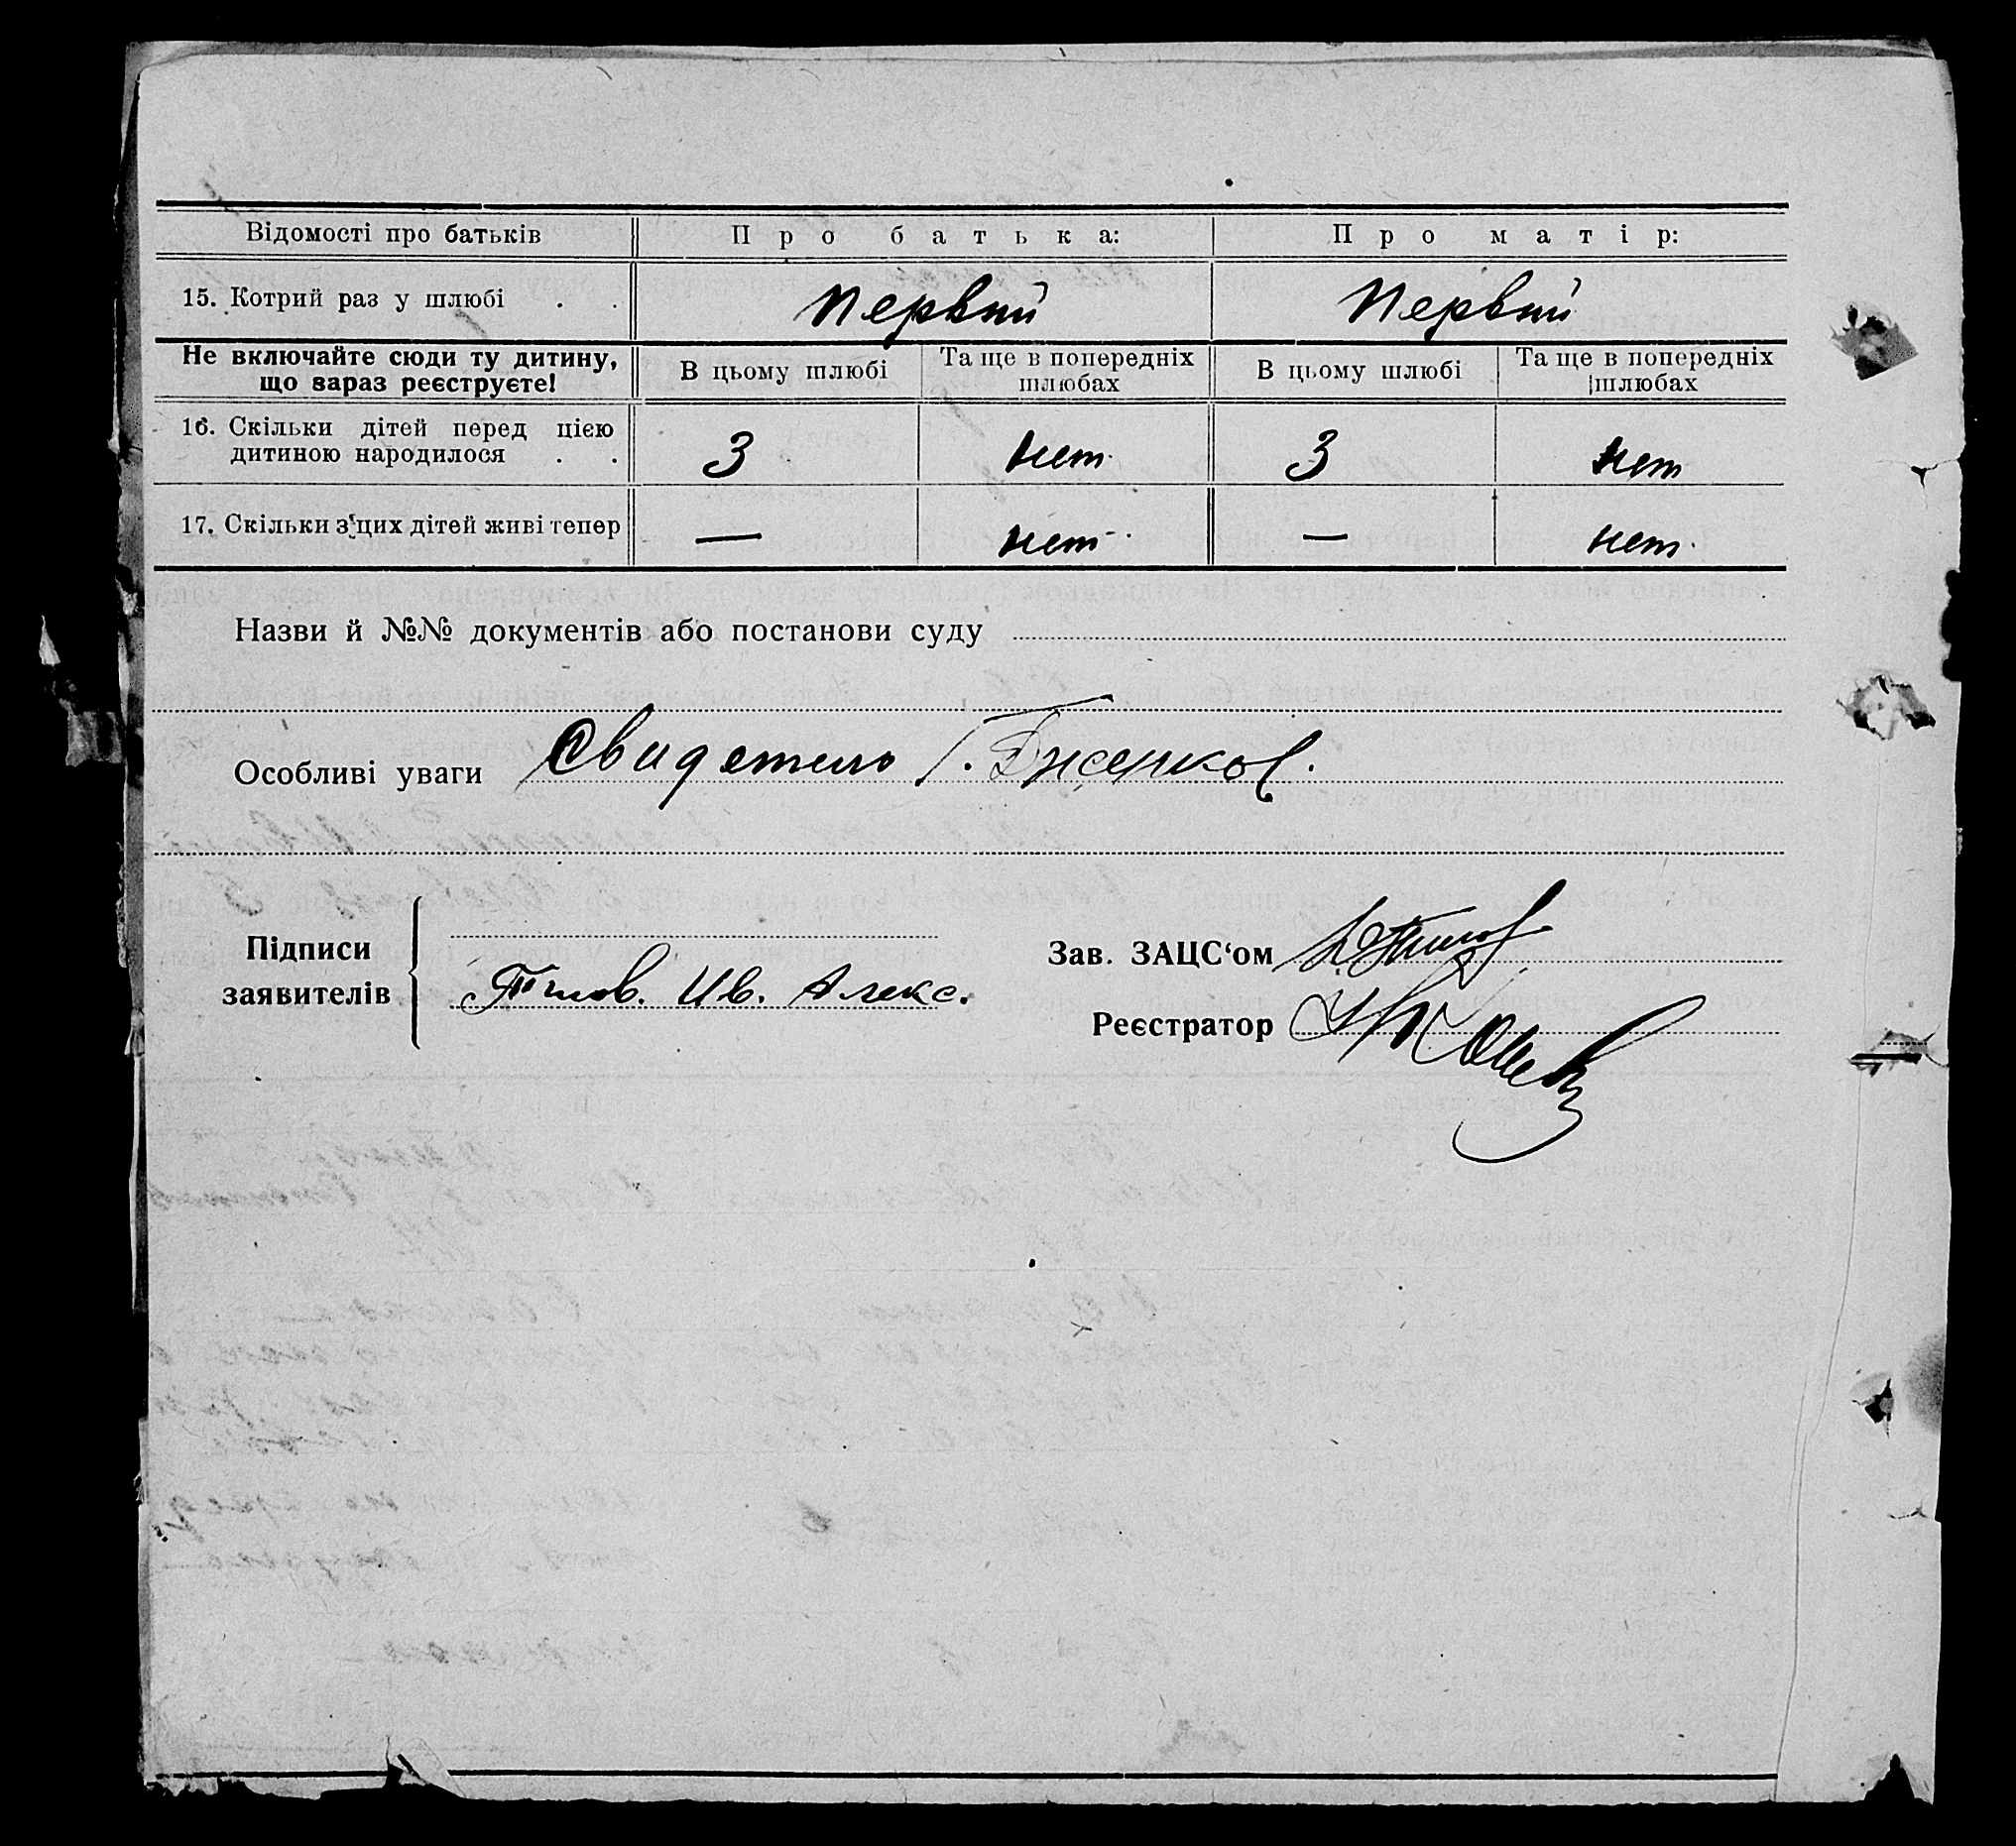 Відомості про батьків Про батька: Про матір:
15. Котрий раз у шлюбі . . Первый Первый
Не включайте сюди ту дитину, що зараз реєструєте! В цьому шлюбі Та ще в попередніх шлюбах В цьому шлюбі Та ще в попередніх шлюбах
16. Скільки дітей перед цією
дитиною народилося . . 3 нет 3 нет
17. Скільки з цих дітей живі тепер — нет — нет
Назви й №№ документів або постанови суду
Особливі уваги Свидетель Г.
Підписи
заявителів Ив. Алекс.
Зав. ЗАЦС‘ом
Реєстратор